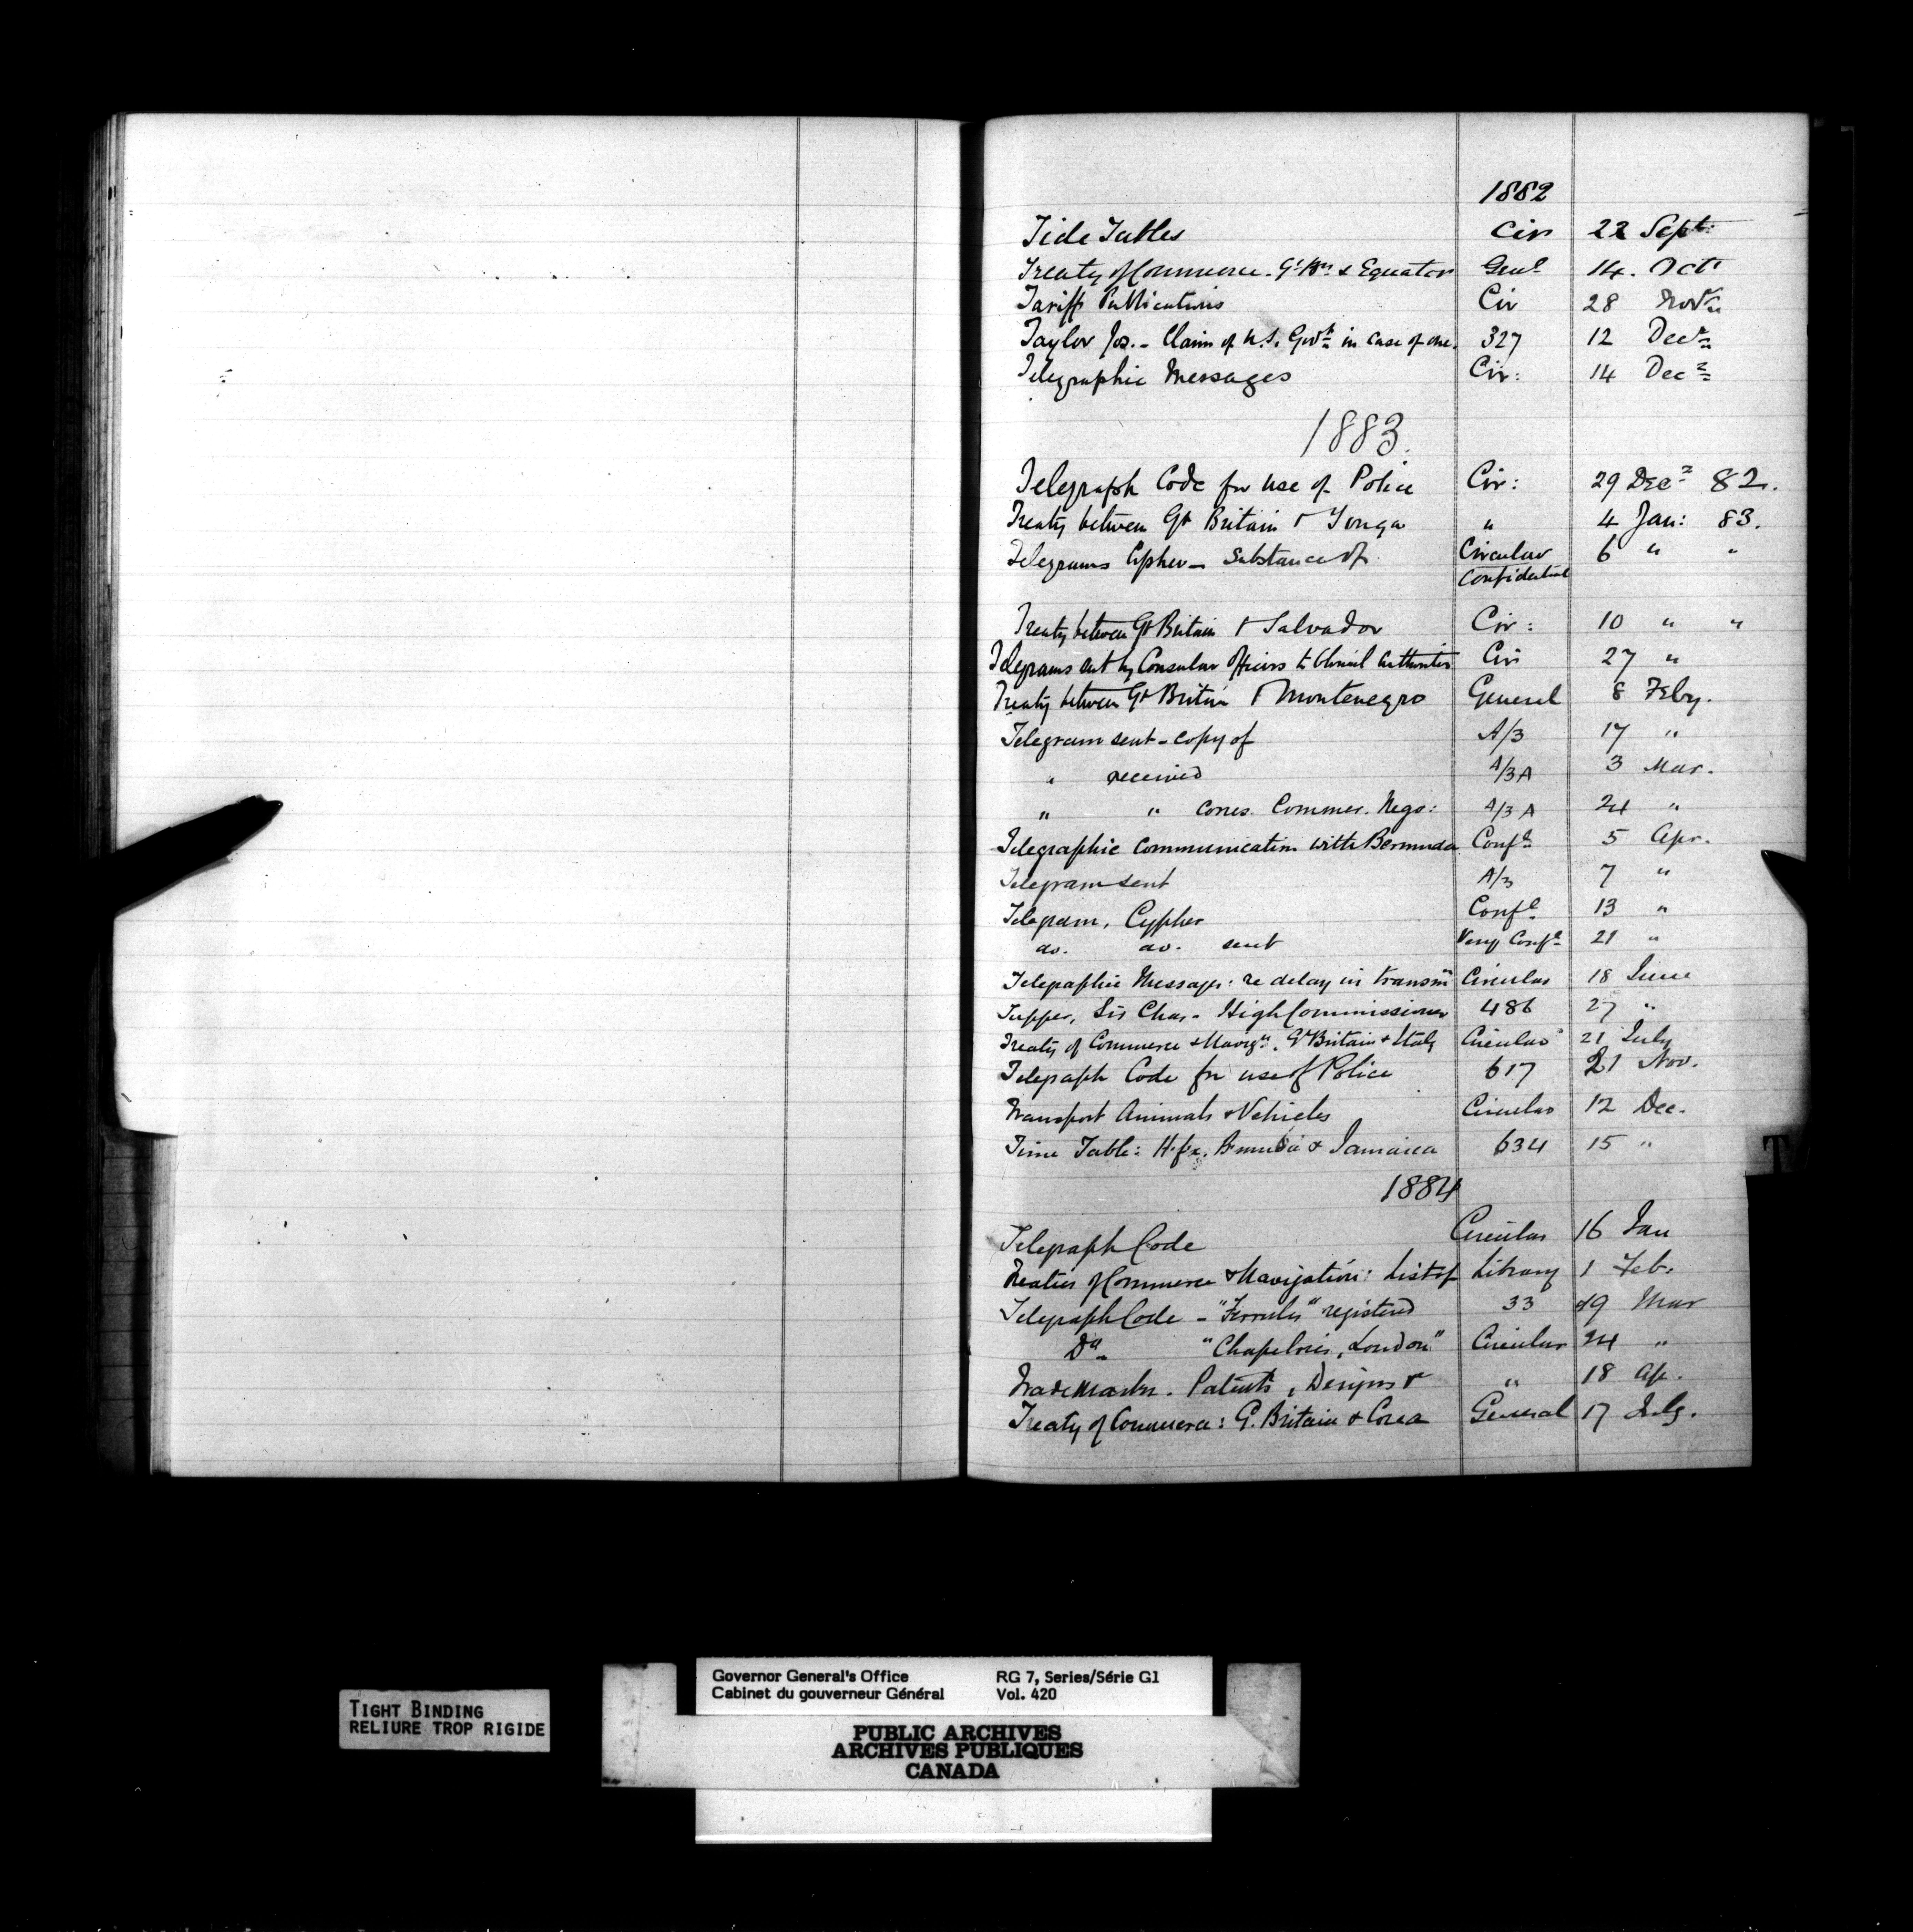 1882
Tide Tables Cir 22 Sept.
Treaty of Commerce. Gt Bn & Equator Genl 14. Oct
Tariff Publications Cir 28 Novr
Taylor Jos. - Claim of U.S. Govt in case of one. 327 12 Decr
Telegraphic Messages Cir: 14 Decr
1883.
Telegraph Code for use of Police Cir: 29 Decr 82.
Treaty between Gt Britain & Tonga " 4 Jan: 83.
Telegrams Cypher - Substance of Circular 6 " "
Confidential
Treaty between Gt Britain & Salvador Cir: 10 " "
Telegrams sent by Consular Officers to Colonial Authorities Cir 27 "
Treaty between Gt Britain & Montenegro General 8 Feby.
Telegram sent - copy of A/3 17 "
" received A/3 A 3 Mar.
" " corres. Commer. Nego: A/3 A 24 "
Telegraphic Communication with Bermuda Confl 5 Apr.
Telegram sent A/3 7 "
Telegram, Cypher Confl 13 "
do. do. sent Very Confl 21 "
Telegraphic Messages: re delay in transmn Circular 18 June
Tupper, Sir Chas - High Commissioner 486 27 "
Treaty of Commerce & Navign. Gt Britain & Italy Circular 21 July
Telegraph Code for use of Police 617 21 Nov.
Transport Animals & Vehicles Circular 12 Dec.
Time Table: Hfx. Bermuda & Jamaica 634 15 "
T
1884
Telegraph Code Circular 16 Jan
Treaties of Commerce & Navigation: List of Library 1 Feb.
Telegraph Code - " " registered 33 19 Mar
Do " London" Circular 24 "
Trade Marks. Patents, Designs & " 18 Ap.
Treaty of Commerce: G. Britain & Corea General 17 July.
TIGHT BINDING
RELIURE TROP RIGIDE
Governor General's Office RG 7, Series/Série G1
Cabinet du gouverneur Général Vol. 420
PUBLIC ARCHIVES
ARCHIVES PUBLIQUES
CANADA